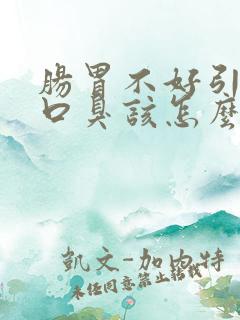 腸胃不好引
口臭該怎麼
凱文-加內特
未经同意禁止转载